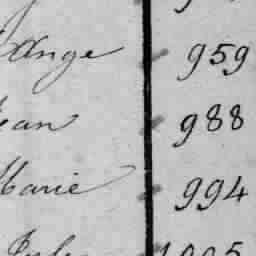 L'Ange 959
Jean 988
Marie 994
1005